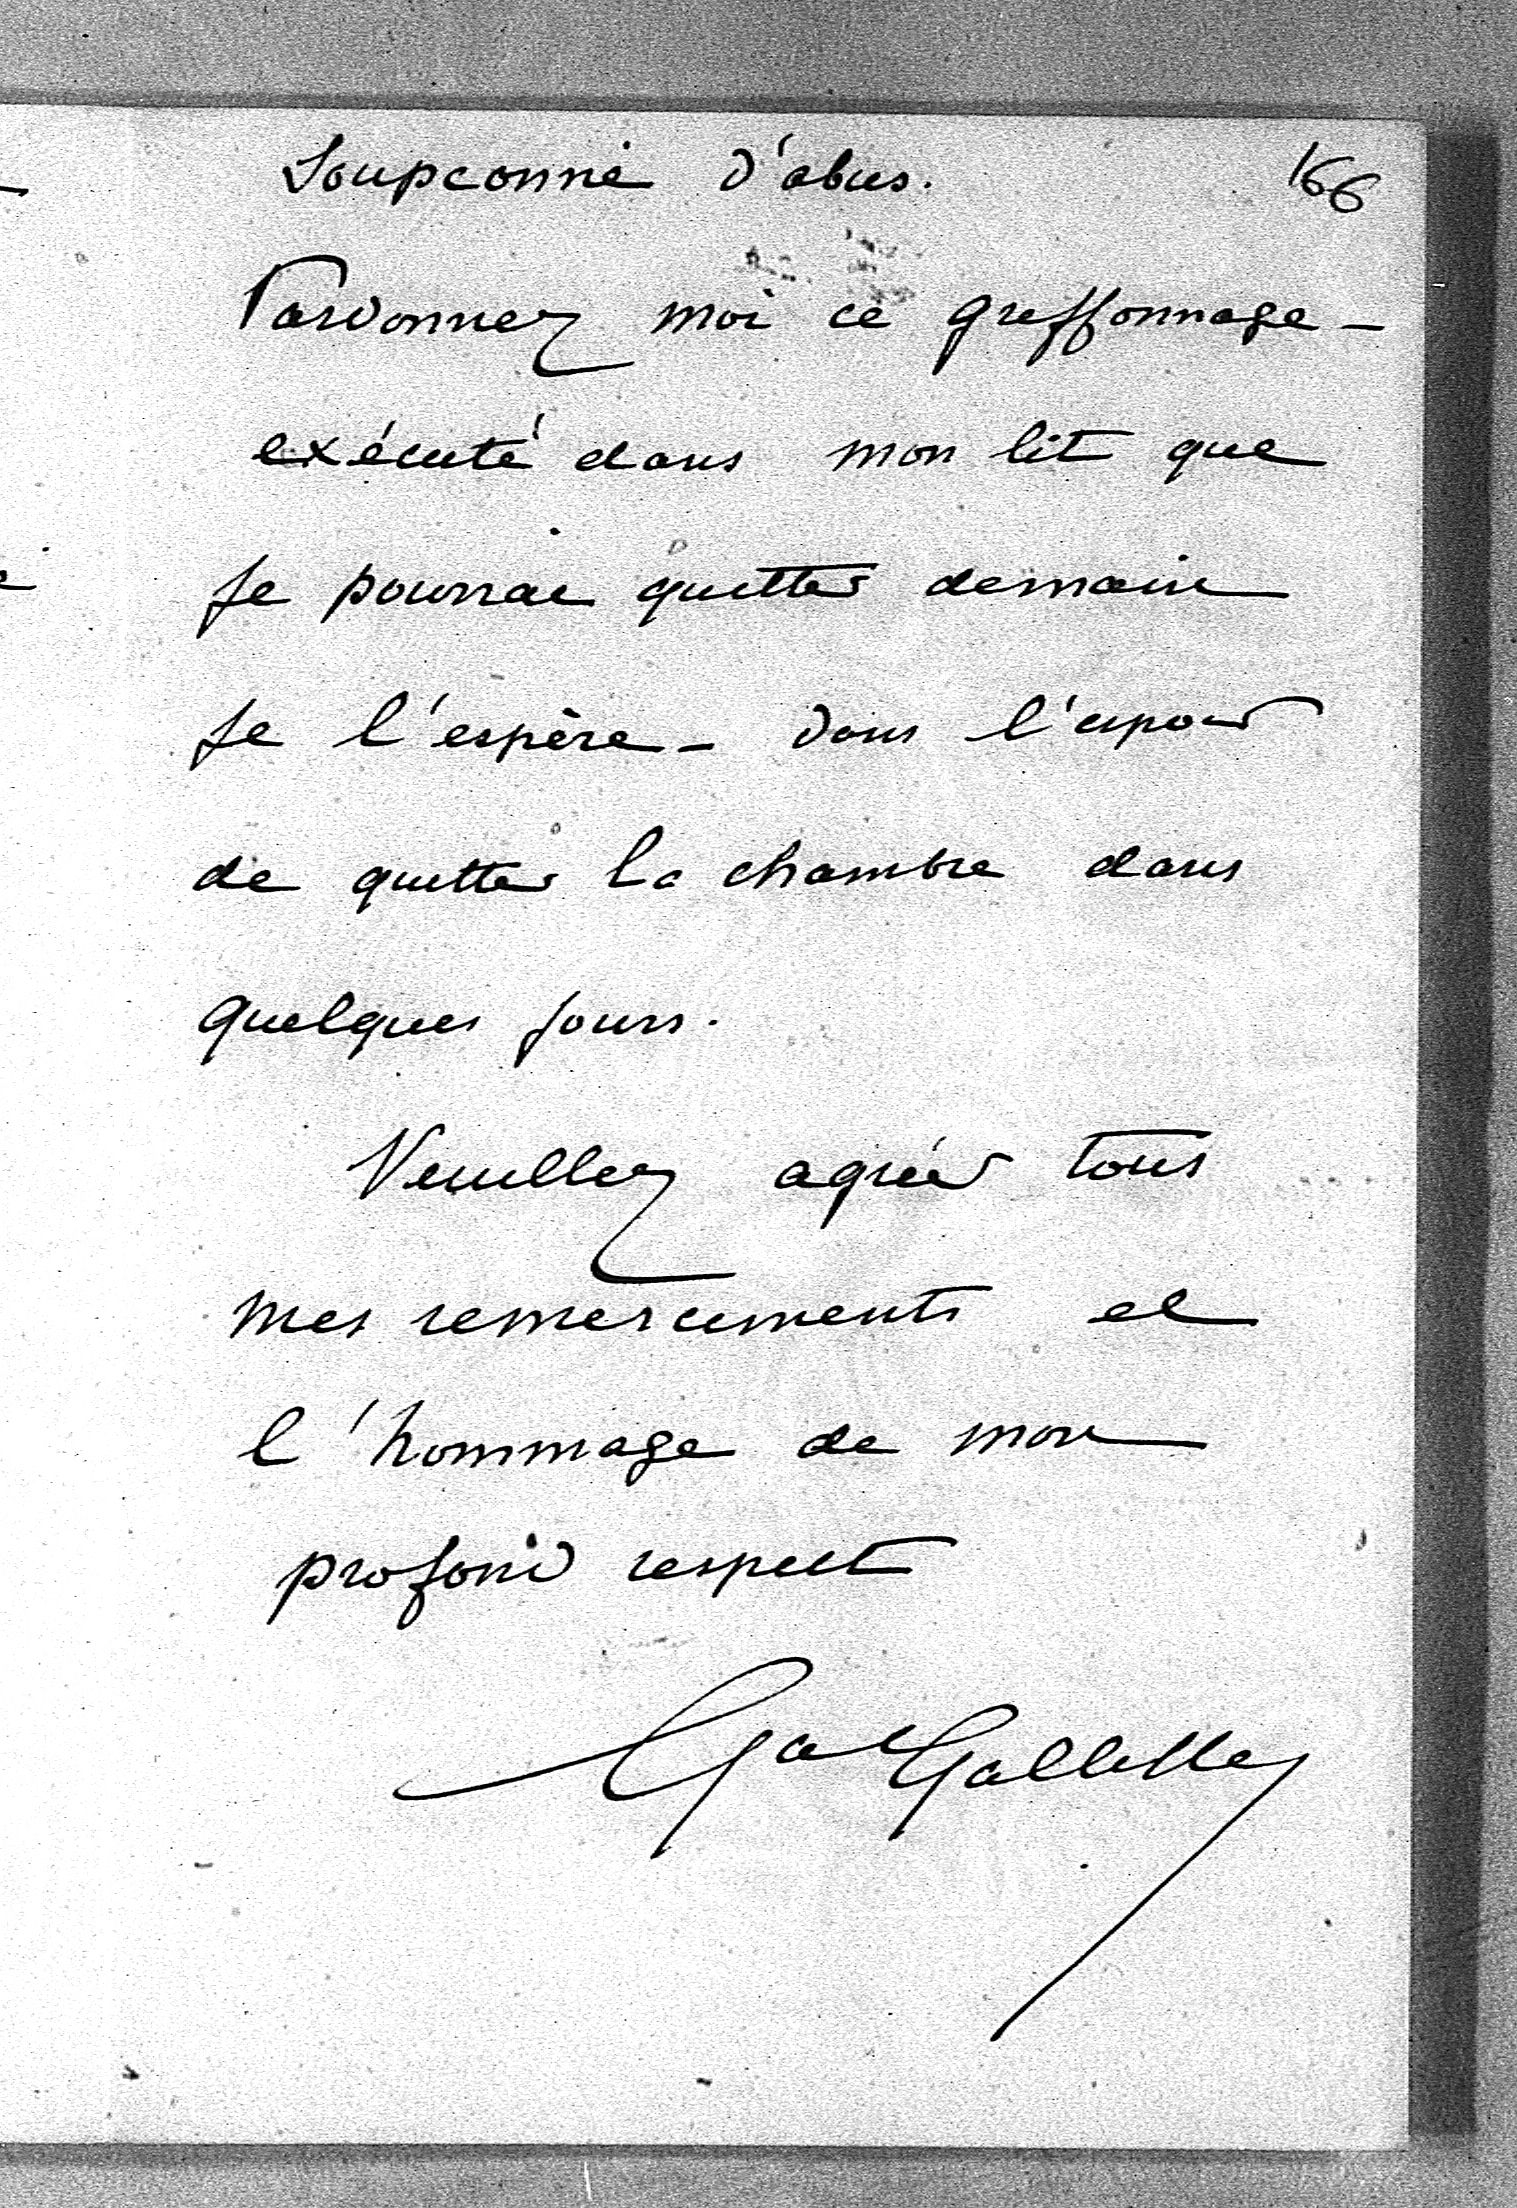 soupçonné d'abus. 166
Pardonnez moi ce greffonnage -
exécuté dans mon lit que
je pourrai quitter demain
je l'espère - dans l'espoir
de quitter la chambre dans
quelques jours.
Veuillez agréer tous
mes remerciments et
l'hommage de mon
profond respect